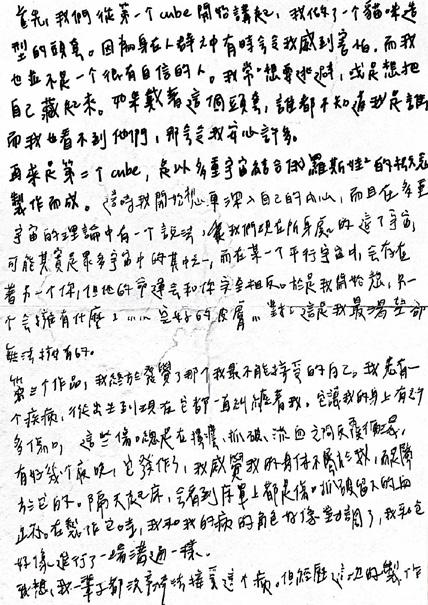 首先，我們從第一個cube開始講起，我做了一個貓咪造
型的頭套。因為身在人群之中有時會令我感到害怕，而我
也並不是一個很有自信的人。我常想要逃避，或是想把
自己藏起來。如果戴著這個頭套，誰都不知道我是誰
而我也看不到他們，那會令我安心許多。
再來是第二個cube，是以多重宇宙結合俄羅斯娃娃的概念
製作而成。這時我開始想更深入自己的內心，而且在多重
宇宙的理論中有一個說法，我們現在所身處的這個宇宙，
可能其實是眾多宇宙中的其中之一，而在某一個平行宇宙中，會存在
著另一個你，但他的命運會和你完全相反。於是我開始想，另一
個會擁有什麼？……完好的皮膚。對，這是我最渴望卻
無法擁有的。
第三個作品，我終於發覺了那個我最不能接受的自己。我患有一
個疾病，從出生到現在它都一直糾纏著我。它讓我的身上有許
多傷口，這些傷口總是在搔癢、抓破、流血之間反覆循環。
有好幾個夜晚，它發作了，我感覺我的身體不屬於我，而是屬
於它的。隔天起床，會看到床單上都是傷口抓破留下的血
在製作它時，我和我的病的角色好像對調了，我和它
好像進行了一場溝通一樣。
我想，我一輩子都沒辦法接受這個病。但經歷這次的製作